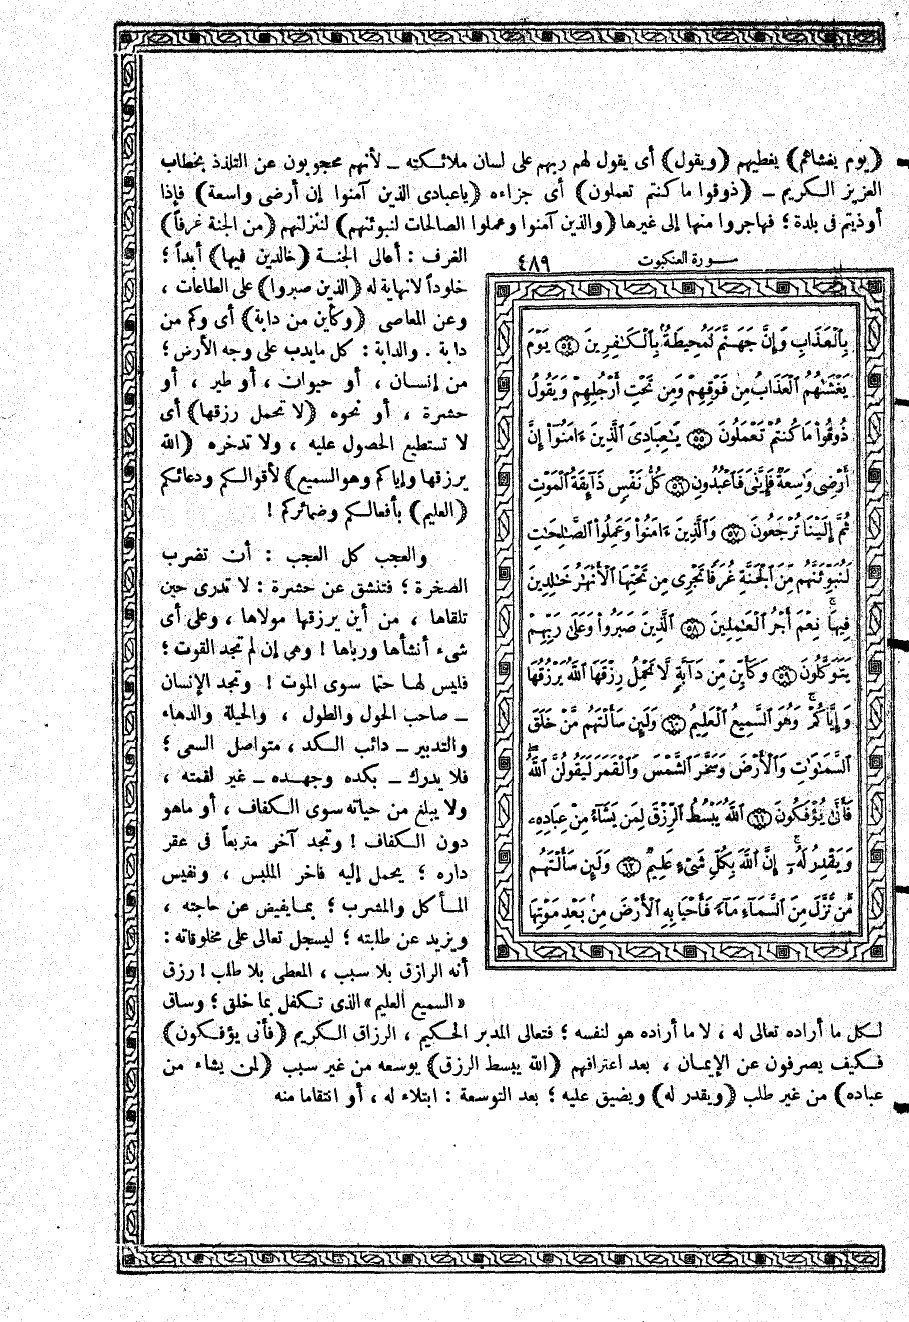 (يوم يغشاهم) يغطيهم (ويقول) أى يقول لهم ربهم على لسان ملائكته ــ لأنهم محجوبون عن التلذذ بخطاب
العزيز الكريم ــ (ذوقوا ما كنتم تعملون) أى جزاءه (ياعبادى الذين آمنوا إن أرضى واسعة) فإذا
أوذيتم فى بلدة ؛ فهاجروا منها إلى غيرها (والذين آمنوا وعملوا الصالحات لنبوئنهم) لننزلنهم (من الجنة غرفاً)
الغرف : أعالى الجنة (خالدين فيها) أبداً ؛
خلوداً لانهاية له (الذين صبروا) على الطاعات ،
وعن المعاصى (وكأين من دابة) أى وكم من
دابة . والدابة : كل مايدب على وجه الأرض ؛
من إنسان ، أو حيوان ، أو طير ، أو
حشرة ، أو نحوه (لا تحمل رزقها) أى
لا تستطيع الحصول عليه ، ولا تدخره (الله
يرزقها وإياكم وهو السميع) لأقوالكم ودعائكم
(العليم) بأفعالكم وضمائركم !
والعجب كل العجب : أن تضرب
الصخرة ؛ فتنشق عن حشرة : لا تدرى حين
تلقاها ، من أين يرزقها مولاها ، وعلى أى
شىء أنشأها ورباها ! وهى إن لم تجد القوت ؛
فليس لها حتما سوى الموت ! وتجد الإنسان
ــ صاحب الحول والطول ، والحيلة والدهاء
والتدبير ــ دائب الكد ، متواصل السعى ؛
فلا يدرك ــ بكده وجهده ــ غير لقمته ،
ولا يبلغ من حياته سوى الكفاف ، أو ماهو
دون الكفاف ! وتجد آخر متربعاً فى عقر
داره ؛ يحمل إليه فاخر الملبس ، ونفيس
المأكل والمشرب ؛ بما يفيض عن حاجته ،
ويزيد عن طلبته ؛ ليسجل تعالى على مخلوقاته :
أنه الرازق بلا سبب ، المعطى بلا طلب ! رزق
«السميع العليم» الذى تكفل بما خلق ؛ وساق
سورة العنكبوت ٤٨٩
بِٱلْعَذَابِ وَإِنَّ جَهَنَّمَ لَمُحِيطَةٌۢ بِٱلْكَـٰفِرِينَ ٥٤ يَوْمَ
يَغْشَىٰهُمُ ٱلْعَذَابُ مِن فَوْقِهِمْ وَمِن تَحْتِ أَرْجُلِهِمْ وَيَقُولُ
ذُوقُوا۟ مَا كُنتُمْ تَعْمَلُونَ ٥٥ يَـٰعِبَادِىَ ٱلَّذِينَ ءَامَنُوٓا۟ إِنَّ
أَرْضِى وَٰسِعَةٌ فَإِيَّـٰىَ فَٱعْبُدُونِ ٥٦ كُلُّ نَفْسٍ ذَآئِقَةُ ٱلْمَوْتِ
ثُمَّ إِلَيْنَا تُرْجَعُونَ ٥٧ وَٱلَّذِينَ ءَامَنُوا۟ وَعَمِلُوا۟ ٱلصَّـٰلِحَـٰتِ
لَنُبَوِّئَنَّهُم مِّنَ ٱلْجَنَّةِ غُرَفًا تَجْرِى مِن تَحْتِهَا ٱلْأَنْهَـٰرُ خَـٰلِدِينَ
فِيهَا ۚ نِعْمَ أَجْرُ ٱلْعَـٰمِلِينَ ٥٨ ٱلَّذِينَ صَبَرُوا۟ وَعَلَىٰ رَبِّهِمْ
يَتَوَكَّلُونَ ٥٩ وَكَأَيِّن مِّن دَآبَّةٍ لَّا تَحْمِلُ رِزْقَهَا ٱللَّهُ يَرْزُقُهَا
وَإِيَّاكُمْ ۚ وَهُوَ ٱلسَّمِيعُ ٱلْعَلِيمُ ٦٠ وَلَئِن سَأَلْتَهُم مَّنْ خَلَقَ
ٱلسَّمَـٰوَٰتِ وَٱلْأَرْضَ وَسَخَّرَ ٱلشَّمْسَ وَٱلْقَمَرَ لَيَقُولُنَّ ٱللَّهُ ۖ
فَأَنَّىٰ يُؤْفَكُونَ ٦١ ٱللَّهُ يَبْسُطُ ٱلرِّزْقَ لِمَن يَشَآءُ مِنْ عِبَادِهِۦ
وَيَقْدِرُ لَهُۥٓ ۚ إِنَّ ٱللَّهَ بِكُلِّ شَىْءٍ عَلِيمٌ ٦٢ وَلَئِن سَأَلْتَهُم
مَّن نَّزَّلَ مِنَ ٱلسَّمَآءِ مَآءً فَأَحْيَا بِهِ ٱلْأَرْضَ مِنۢ بَعْدِ مَوْتِهَا
لكل ما أراده تعالى له ، لا ما أراده هو لنفسه ؛ فتعالى المدبر الحكيم ، الرزاق الكريم (فأنى يؤفكون)
فكيف يصرفون عن الإيمان ، بعد اعترافهم (الله يبسط الرزق) يوسعه من غير سبب (لمن يشاء من
عباده) من غير طلب (ويقدر له) ويضيق عليه ؛ بعد التوسعة : ابتلاء له ، أو انتقاما منه